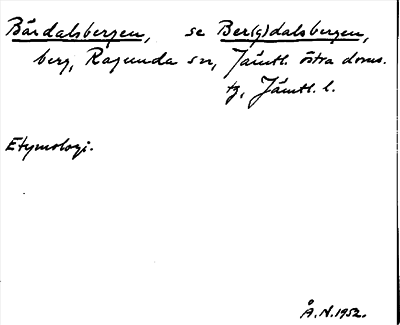 Bårdalsbergen, se Ber(g)dalsbergen,
berg, Ragunda sn, Jämtl. östra doms.
tg, Jämtl. l.
Etymologi.
Å.N. 1952.